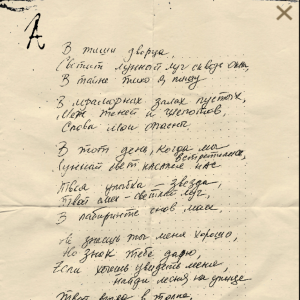 В тиши дворца
Светит лунный луч сквозь окна,
В тайне тихо я пишу
В мраморных залах пустых,
Меж теней и шепотов,
Слова мои опасны
В тот день, когда мы
встретились,
Лунный свет касался нас
Твоя улыбка – звезда,
Твой смех – светлый луч,
В лабиринте снов моих
Не знаешь ты меня хорошо,
Но знак тебе дарю,
Если хочешь увидеть меня
найди песня на улице